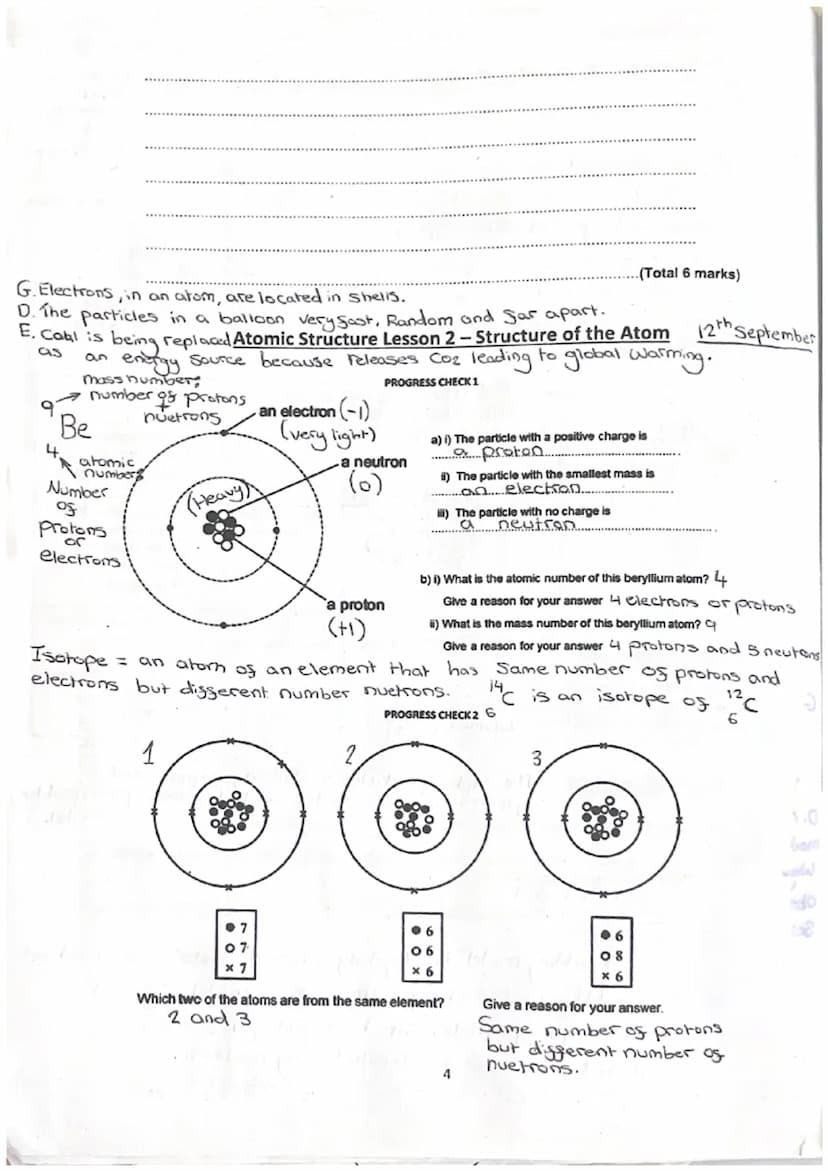 (Total 6 marks)
G. Electrons, in an atom, are located in shells.
D. The particles in a balloon very fast, Random and far apart.
E. Coal is being replaced
Atomic Structure Lesson 2 – Structure of the Atom
12th September
as an energy source because releases CO2 leading to global warming.
PROGRESS CHECK 1
mass number:
number of protons
+
nuetrons
9
Be
4
atomic
number:
Number
of
Protons
or
electrons
an electron (-1)
(very light)
a neutron
(0)
(Heavy)
a proton
(+1)
a) i) The particle with a positive charge is
a proton
ii) The particle with the smallest mass is
an electron
iii) The particle with no charge is
a neutron
b) i) What is the atomic number of this beryllium atom? 4
Give a reason for your answer 4 electrons or protons
ii) What is the mass number of this beryllium atom? 9
Give a reason for your answer 4 protons and 5 neutrons
Isotope = an atom of an element that has same number of protons and
electrons but different number nuetrons. 14 6 C is an isotope of 12 6 C
PROGRESS CHECK 2
1
2
3
● 7
○ 7
x 7
● 6
○ 6
x 6
● 6
○ 8
x 6
Which two of the atoms are from the same element?
2 and 3
Give a reason for your answer.
Same number of protons
but different number of
nuetrons.
4